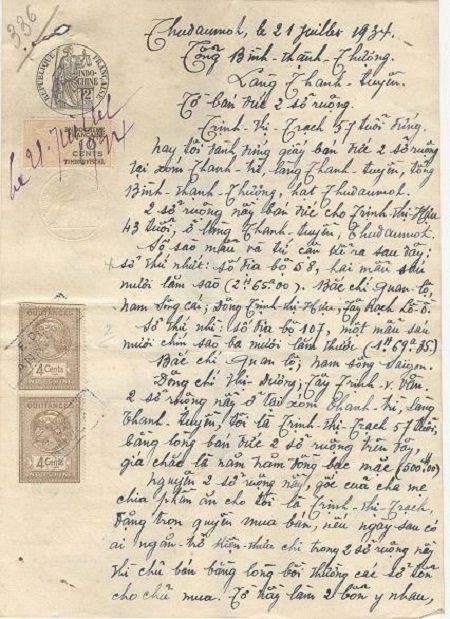 386
REPUBLIQUE FRANÇAISE
INDO-
CHINE
12
INDOCHINE
FRANÇAISE
CENTS
le 21 Juillet
1934
Thudaumot, le 21 Juillet 1934.
Tổng Bình-thanh-Thượng.
Làng Thanh-tuyền.
Tờ bán đức 2 sở ruộng.
Trịnh-thị-Trạch 57 tuổi đứng.
nay tôi đứng giấy bán đức 2 sở ruộng
tại xóm Thanh-trì, làng Thanh-tuyền, tổng
Bình-thanh-Thượng, hạt Thudaumot.
2 sở ruộng nầy bán đức cho Trịnh-thị-Hựu
43 tuổi, ở làng Thanh-tuyền, Thudaumot.
Số sào mẫu và tứ cận kể ra sau đây:
sở thứ nhứt: số địa bộ 58, hai mẫu sáu
mươi lăm sào (2H65a00). Bắc chí quan-lộ,
nam Sông cái; Đông Trịnh-thị-Hựu, Tây Rạch
Sở thứ nhì: số địa bộ 107, một mẫu sáu
mươi chín sào ba mươi lăm thước (1H69a35).
Bắc chí Quan lộ; nam Sông Saigon.
Đông chí thị-Dương; Tây Trịnh-v-
2 sở ruộng nầy ở tại xóm Thanh-trì, làng
Thanh-tuyền, tôi là Trịnh-thị-Trạch 57 tuổi,
bằng lòng bán đức 2 sở ruộng trên đây,
giá chắc là năm trăm đồng bạc
nguyên 2 sở ruộng nầy, gốc của cha mẹ
chia phần ăn cho tôi là Trịnh-thị-Trạch,
đặng trọn quyền mua bán, nếu ngày sau có
ai ngăn-trở chi trong 2 sở ruộng nầy
thì chủ bán bằng lòng bồi thường các sở tổn
cho chủ mua. Tờ nầy làm 2 bổn y nhau,
QUITTANCES
4 Cents
INDOCHINE
QUITTANCES
4 Cents
INDOCHINE